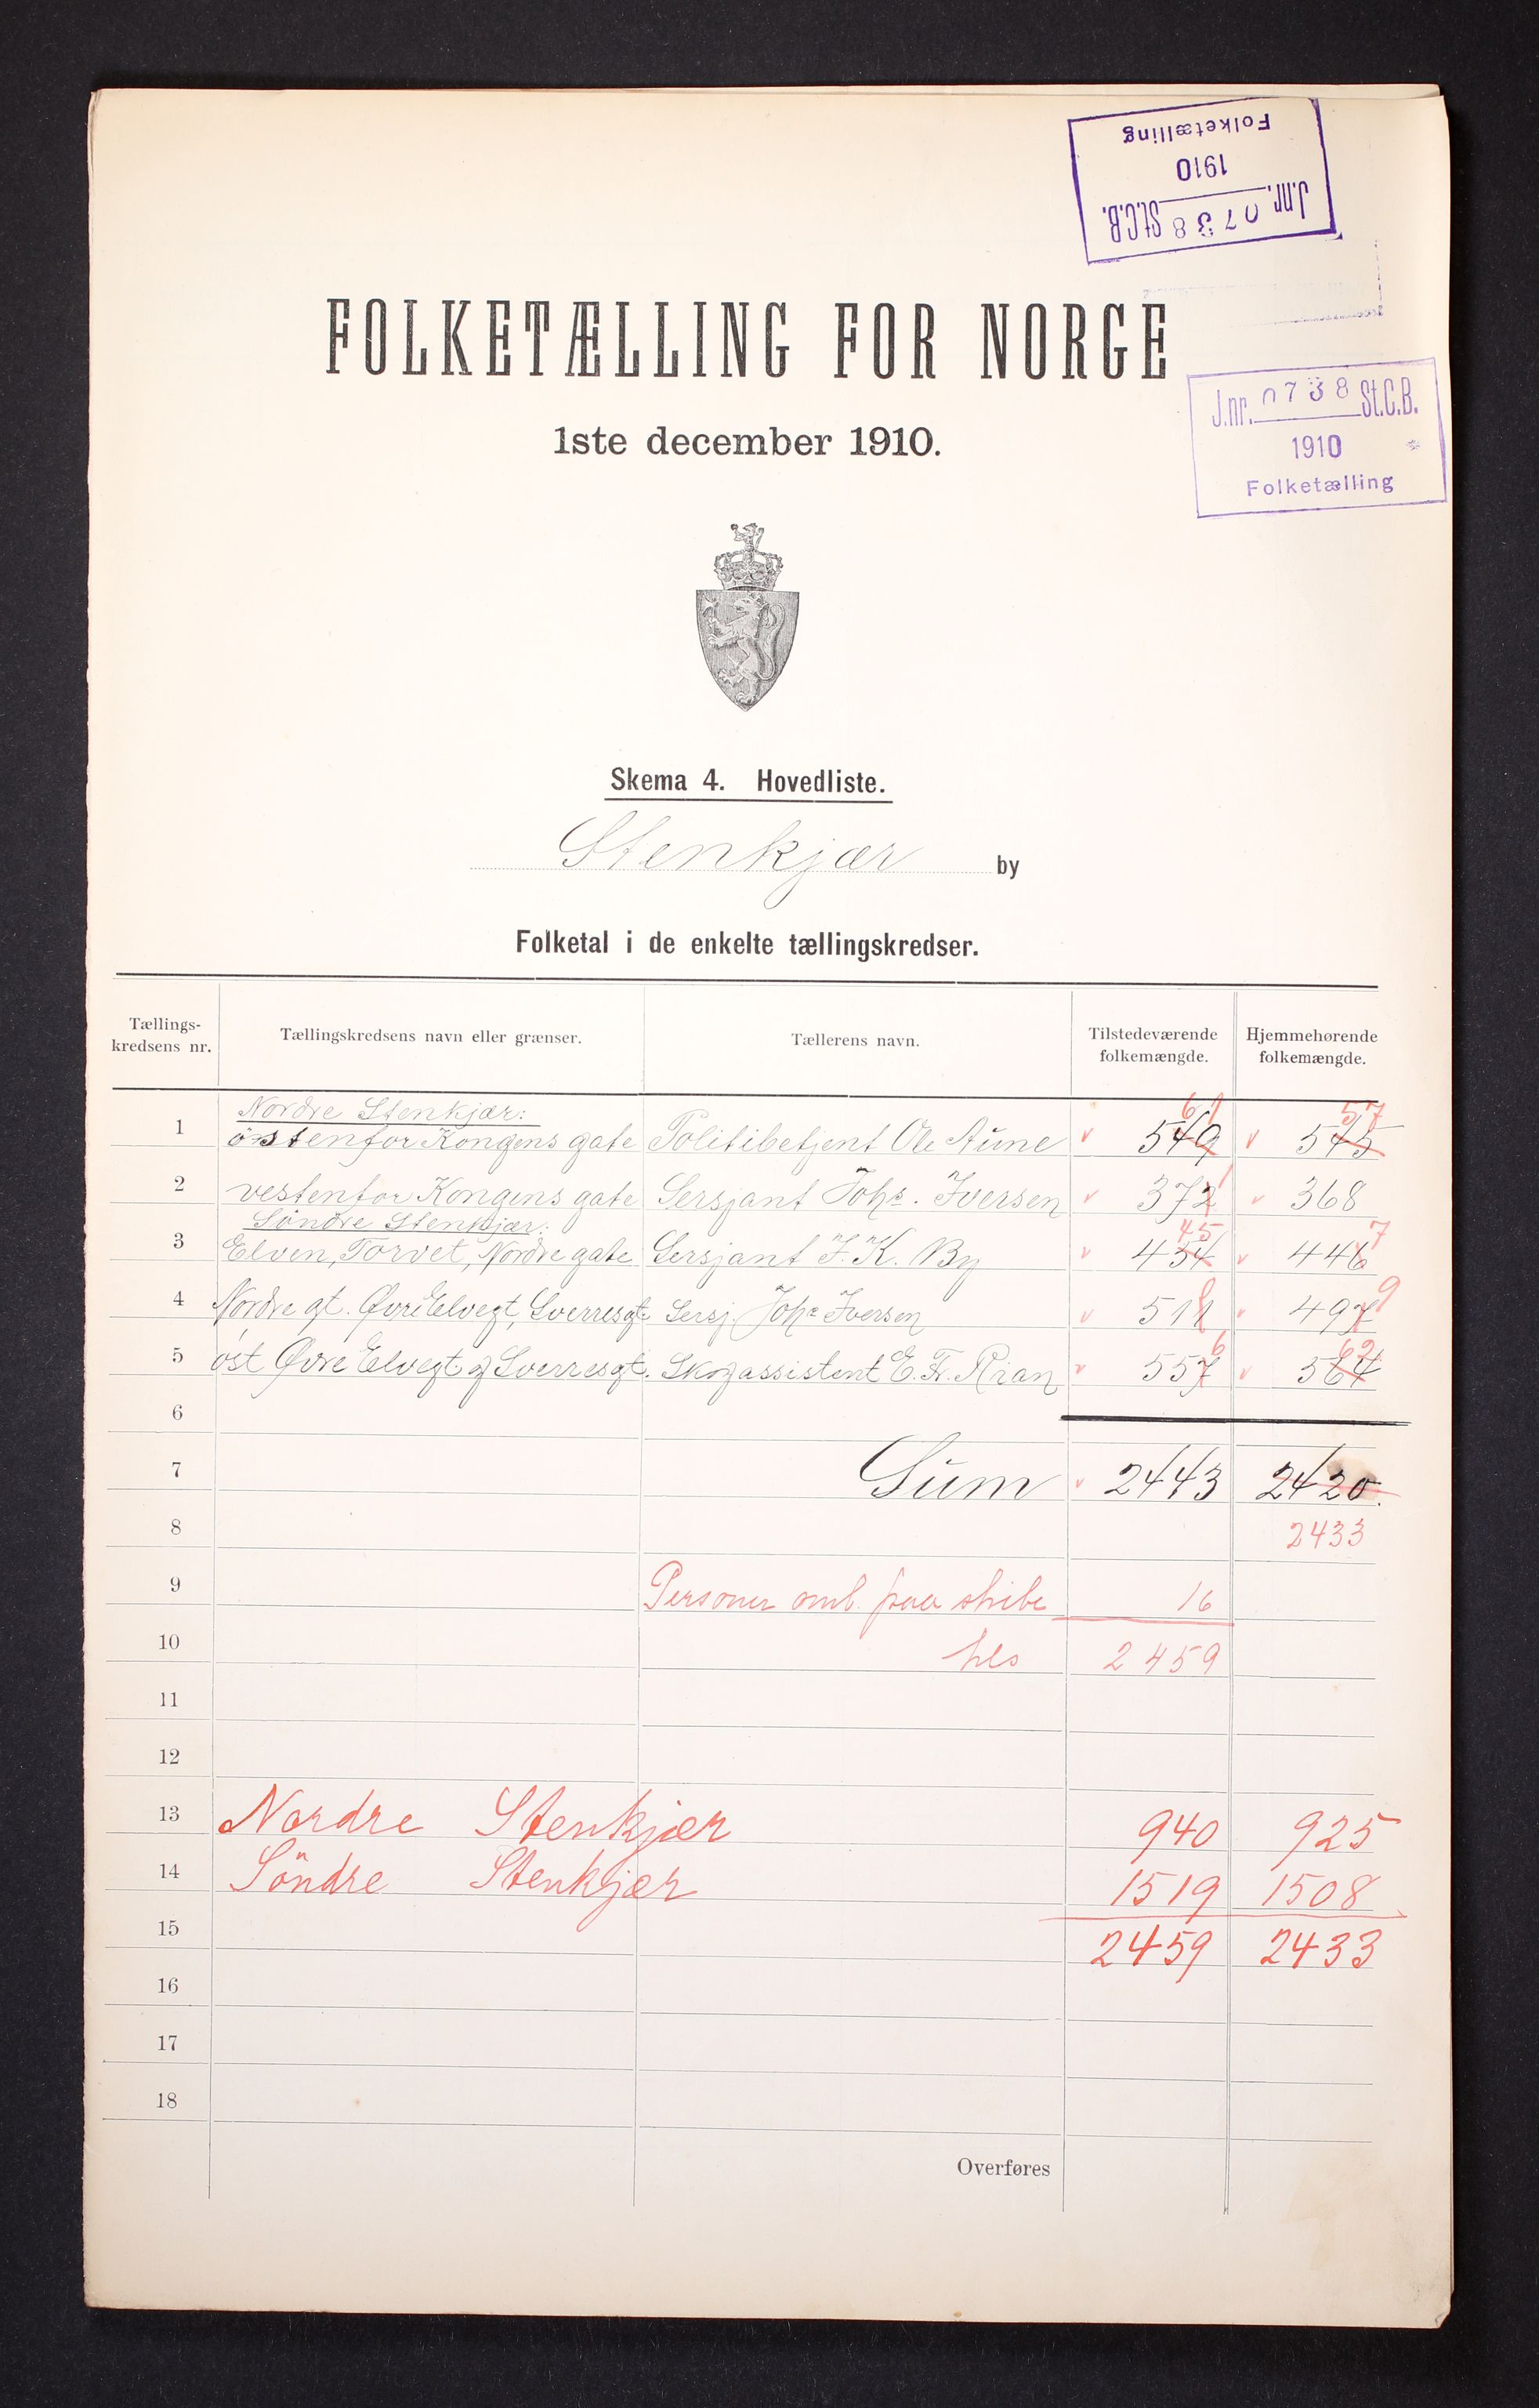 Folketælling
1910
J.nr. 0738 St.C.B.
FOLKETÆLLING FOR NORGE
J.nr. 0738 St.C.B.
1910
Folketælling
1ste december 1910.
Skema 4. Hovedliste.
Stenkjær by
Folketal i de enkelte tællingskredser.
Tællings-kredsens nr. Tællingskredsens navn eller grænser. Tællerens navn. Tilstedeværende folkemængde. Hjemmehørende folkemængde.
Nordre Stenkjær: 61 57
1 östenfor Kongens gate Politibetjent Ole Aune v 549 v 545
2 vestenfor Kongens gate Sersjant Johs. Iversen v 372 1 v 368
Söndre Stenkjær: 45 7
3 Elven, Torvet, Nordre gate Sersjant J. K. By v 454 v 446
4 Nordre gt. Øvre Elvegt, Sverresgt. Sersj. Johs Iversen v 511 v 497 9
6 62
5 öst Øvre Elvegt og Sverresgt. Skogassistent E. Fr. Rian v 557 v 564
6
7 Sum v 2443 2420.
8 2433
9 Personer omb. paa skibe 16
10 2459
11
12
13 Nordre Stenkjær 940 925
14 Söndre Stenkjær 1519 1508
15 2459 2433
16
17
18
Overføres